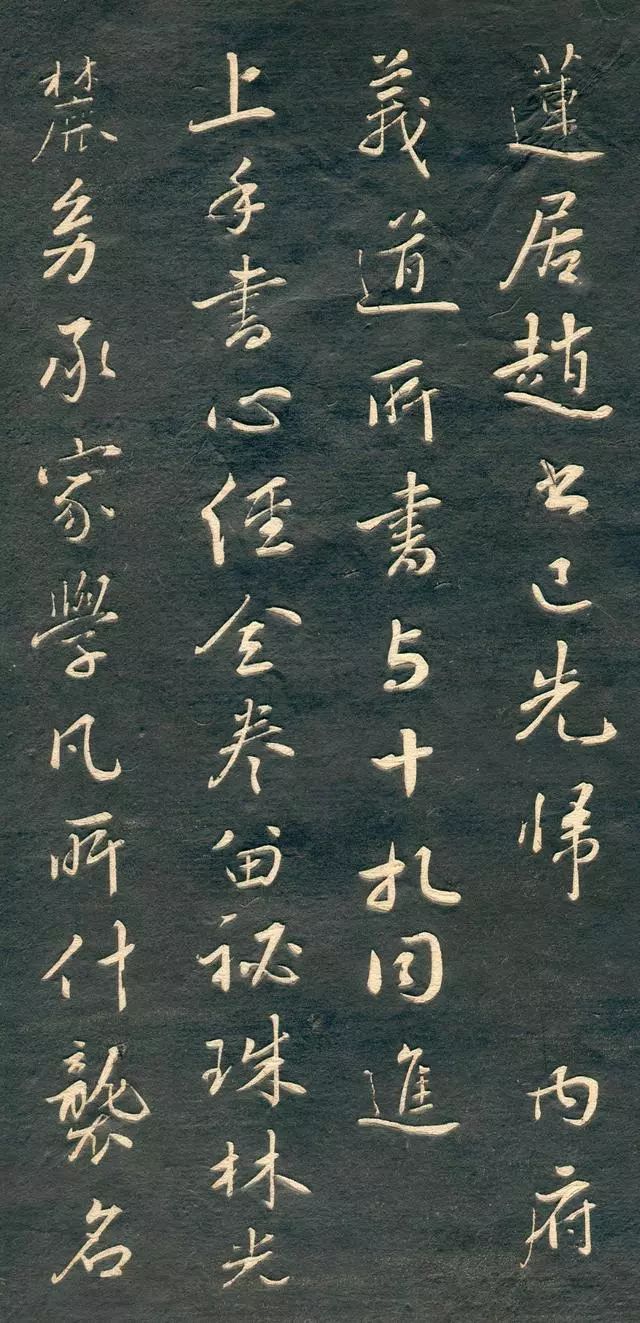 蓮居趙书已先歸 内府
義道所書与十札同進
上手書心經全卷留祕珠林光
麓幼承家學凡所什襲名